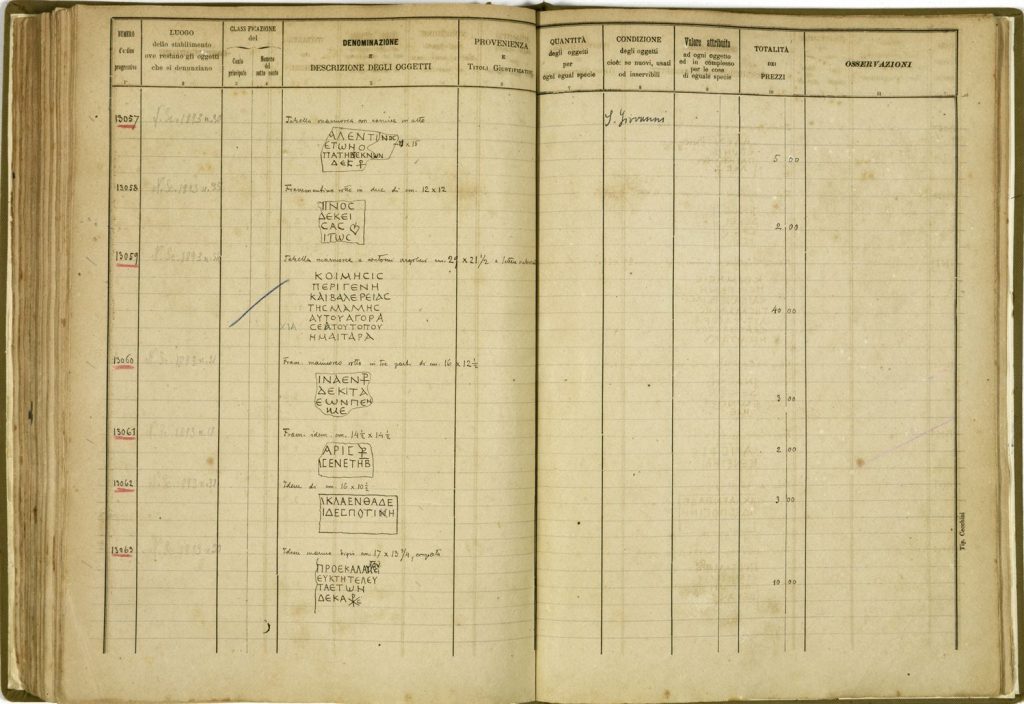 NUMERO
d'ordine
progressivo
LUOGO
dello stabilimento
ove restano gli oggetti
che si denunziano
CLASSIFICAZIONE
del
Conto
principale
Numero
del
sotto conto
DENOMINAZIONE
E
DESCRIZIONE DEGLI OGGETTI
PROVENIENZA
E
TITOLI GIUSTIFICATIVI
QUANTITÀ
degli oggetti
per
ogni egual specie
CONDIZIONE
degli oggetti
cioè: se nuovi, usati
od inservibili
Valore attribuito
ad ogni oggetto
ed in complesso
per le cose
di eguale specie
TOTALITÀ
DEI
PREZZI
OSSERVAZIONI
13057
Tabella marmorea con cornice in alto
S. Giovanni
ΑΛΕΝΤΙΝΟC
ΕΤΩΝΟ
x 15
ΔΕΣ ⳨
5 00
13058
Frammentino rotto in due di cm. 12 x 12
ΠΝΟC
ΔΕΚΕΙ
CAC
ΙΤΩC
2 00
13059
Tabella marmorea a contorni irregolari cm. 29 x 21 1/2 a lettere
ΚΟΙΜΗCΙC
ΠΕΡΙΓΕΝΗ
ΚΑΙΒΑΛΕΡΕΙΑC
ΤΗCΜΑΜΗC
ΑΥΤΟΥΑΓΟΡΑ
CΕΑΤΟΥΤΟΠΟΥ
ΗΜΑΙΤΑΡΑ
40 00
13060
Fram. marmoreo rotto in tre parti di cm. 16 x 12 1/2
ΙΝΔΕΝ⳨
ΔΕΚΙΤΑ
ΕΩΝΠΕΝ
3 00
13061
Fram. idem cm. 14 1/2 x 14 1/2
ΑΡΙC ⳨
CΕΝΕΤΗΒ
2 00
13062
Idem di cm. 16 x 10 1/2
ΙΚΛΑΕΝΘΑΔΕ
ΙΔΕCΠΟΤΙΚΗ
3 00
13063
Idem marmo bigio cm. 17 x 13 3/4,
ΕΥΚΤΗΤΕΛΕΥ
ΤΑΕΤΩΝ
ΔΕΚΑ
10 00
Tip. Cecchini